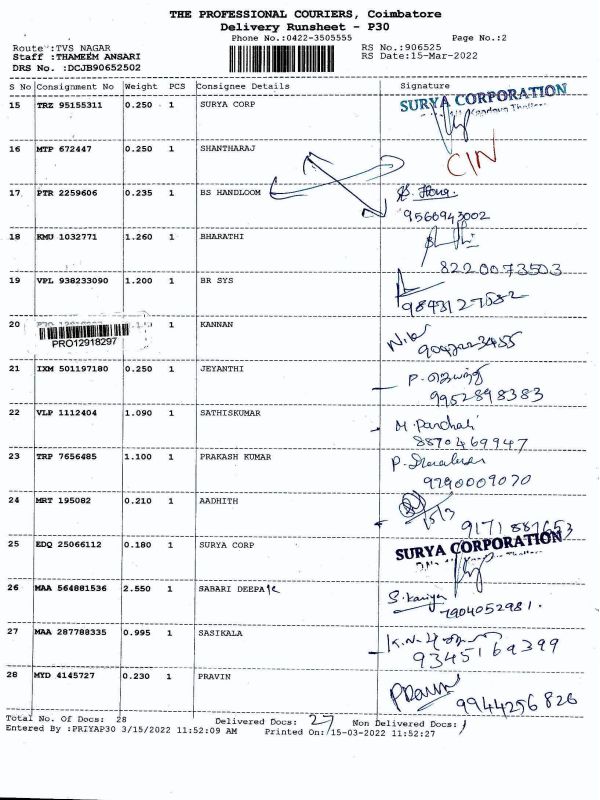 THE PROFESSIONAL COURIERS, Coimbatore
Delivery Runsheet - P30
Phone No.:0422-3505555 Page No.:2
Route :TVS NAGAR RS No.:906525
Staff :THAMEEM ANSARI RS Date:15-Mar-2022
DRS No. :DCJB90652502
S No Consignment No Weight PCS Consignee Details Signature
15 TRZ 95155311 0.250 1 SURYA CORP SURYA CORPORATION
16 MTP 672447 0.250 1 SHANTHARAJ CIN
17 PTR 2259606 0.235 1 BS HANDLOOM
9566943002
18 KMU 1032771 1.260 1 BHARATHI
8220073503
19 VPL 938233090 1.200 1 BR SYS
9843127582
20 PRO12918297 1 KANNAN
21 IXM 501197180 0.250 1 JEYANTHI
9952898383
22 VLP 1112404 1.090 1 SATHISKUMAR
8870469947
23 TRP 7656485 1.100 1 PRAKASH KUMAR
9790009070
24 MRT 195082 0.210 1 AADHITH
9171887653
25 EDQ 25066112 0.180 1 SURYA CORP SURYA CORPORATION
26 MAA 564881536 2.550 1 SABARI DEEPAK
7904052981.
27 MAA 287788335 0.995 1 SASIKALA
9345169399
28 MYD 4145727 0.230 1 PRAVIN
9944256826
Total No. Of Docs: 28 Delivered Docs: 27 Non Delivered Docs: 1
Entered By :PRIYAP30 3/15/2022 11:52:09 AM Printed On: 15-03-2022 11:52:27